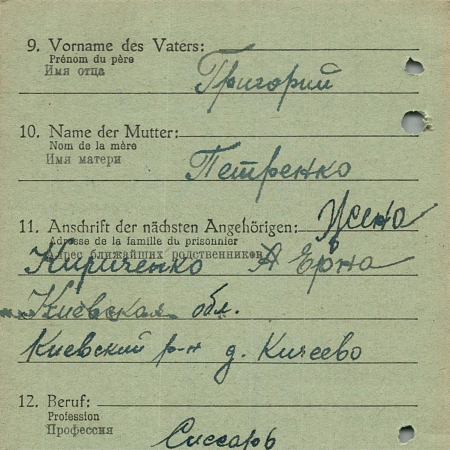 9. Vorname des Vaters:
Prénom du père
Имя отца
Григорий
10. Name der Mutter:
Nom de la mère
Имя матери
Петренко
11. Anschrift der nächsten Angehörigen: Жена
Adresse de la famille du prisonnier
Адрес ближайших родственников
Кириченко А
Киевская обл.
Киевский р-н д. Кичеево
12. Beruf:
Profession
Профессия
Слесарь